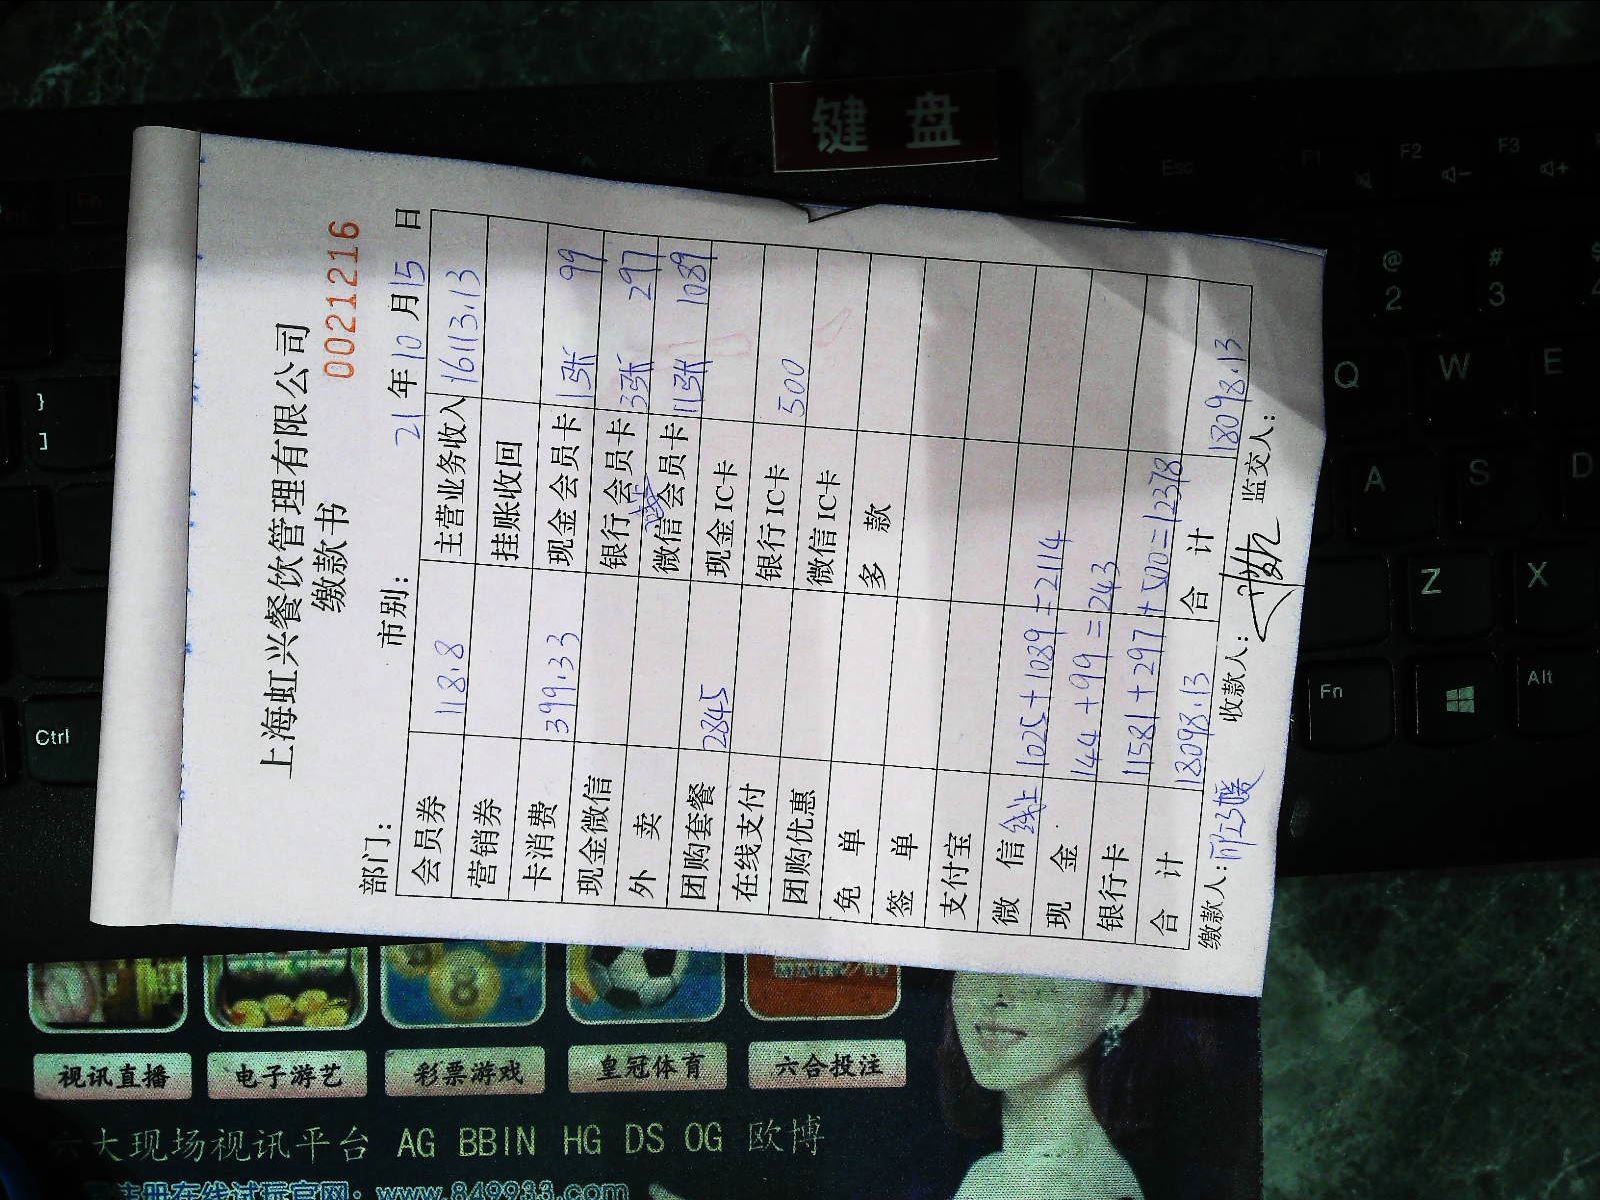 上海虹兴餐饮管理有限公司
缴款书
0021216
部门： 市别： 21年10月15日
会员券 118.8 主营业务收入 16113.13
营销券 挂账收回
卡消费 399.33 现金会员卡 1张 99
现金微信 银行会员卡 3张 297
外 卖 微信会员卡 11张 1089
团购套餐 2845 现金IC卡
在线支付 银行IC卡 500
团购优惠 微信IC卡
免 单 多 款
签 单
支付宝
微 信 线上 1025+1089=2114
现 金 144+99=243
银行卡 11581+297+500=12378
合 计 18098.13 合 计 18098.13
缴款人： 收款人： 监交人：
键 盘
Esc F1 F2 F3
Fn
@ 2 # 3 $
} ]
Q W E
A S D
Z X
Ctrl
Fn Alt
视讯直播 电子游艺 彩票游戏 皇冠体育 六合投注
六大现场视讯平台 AG BBIN HG DS OG 欧博
注册在线试玩官网：www.849933.com